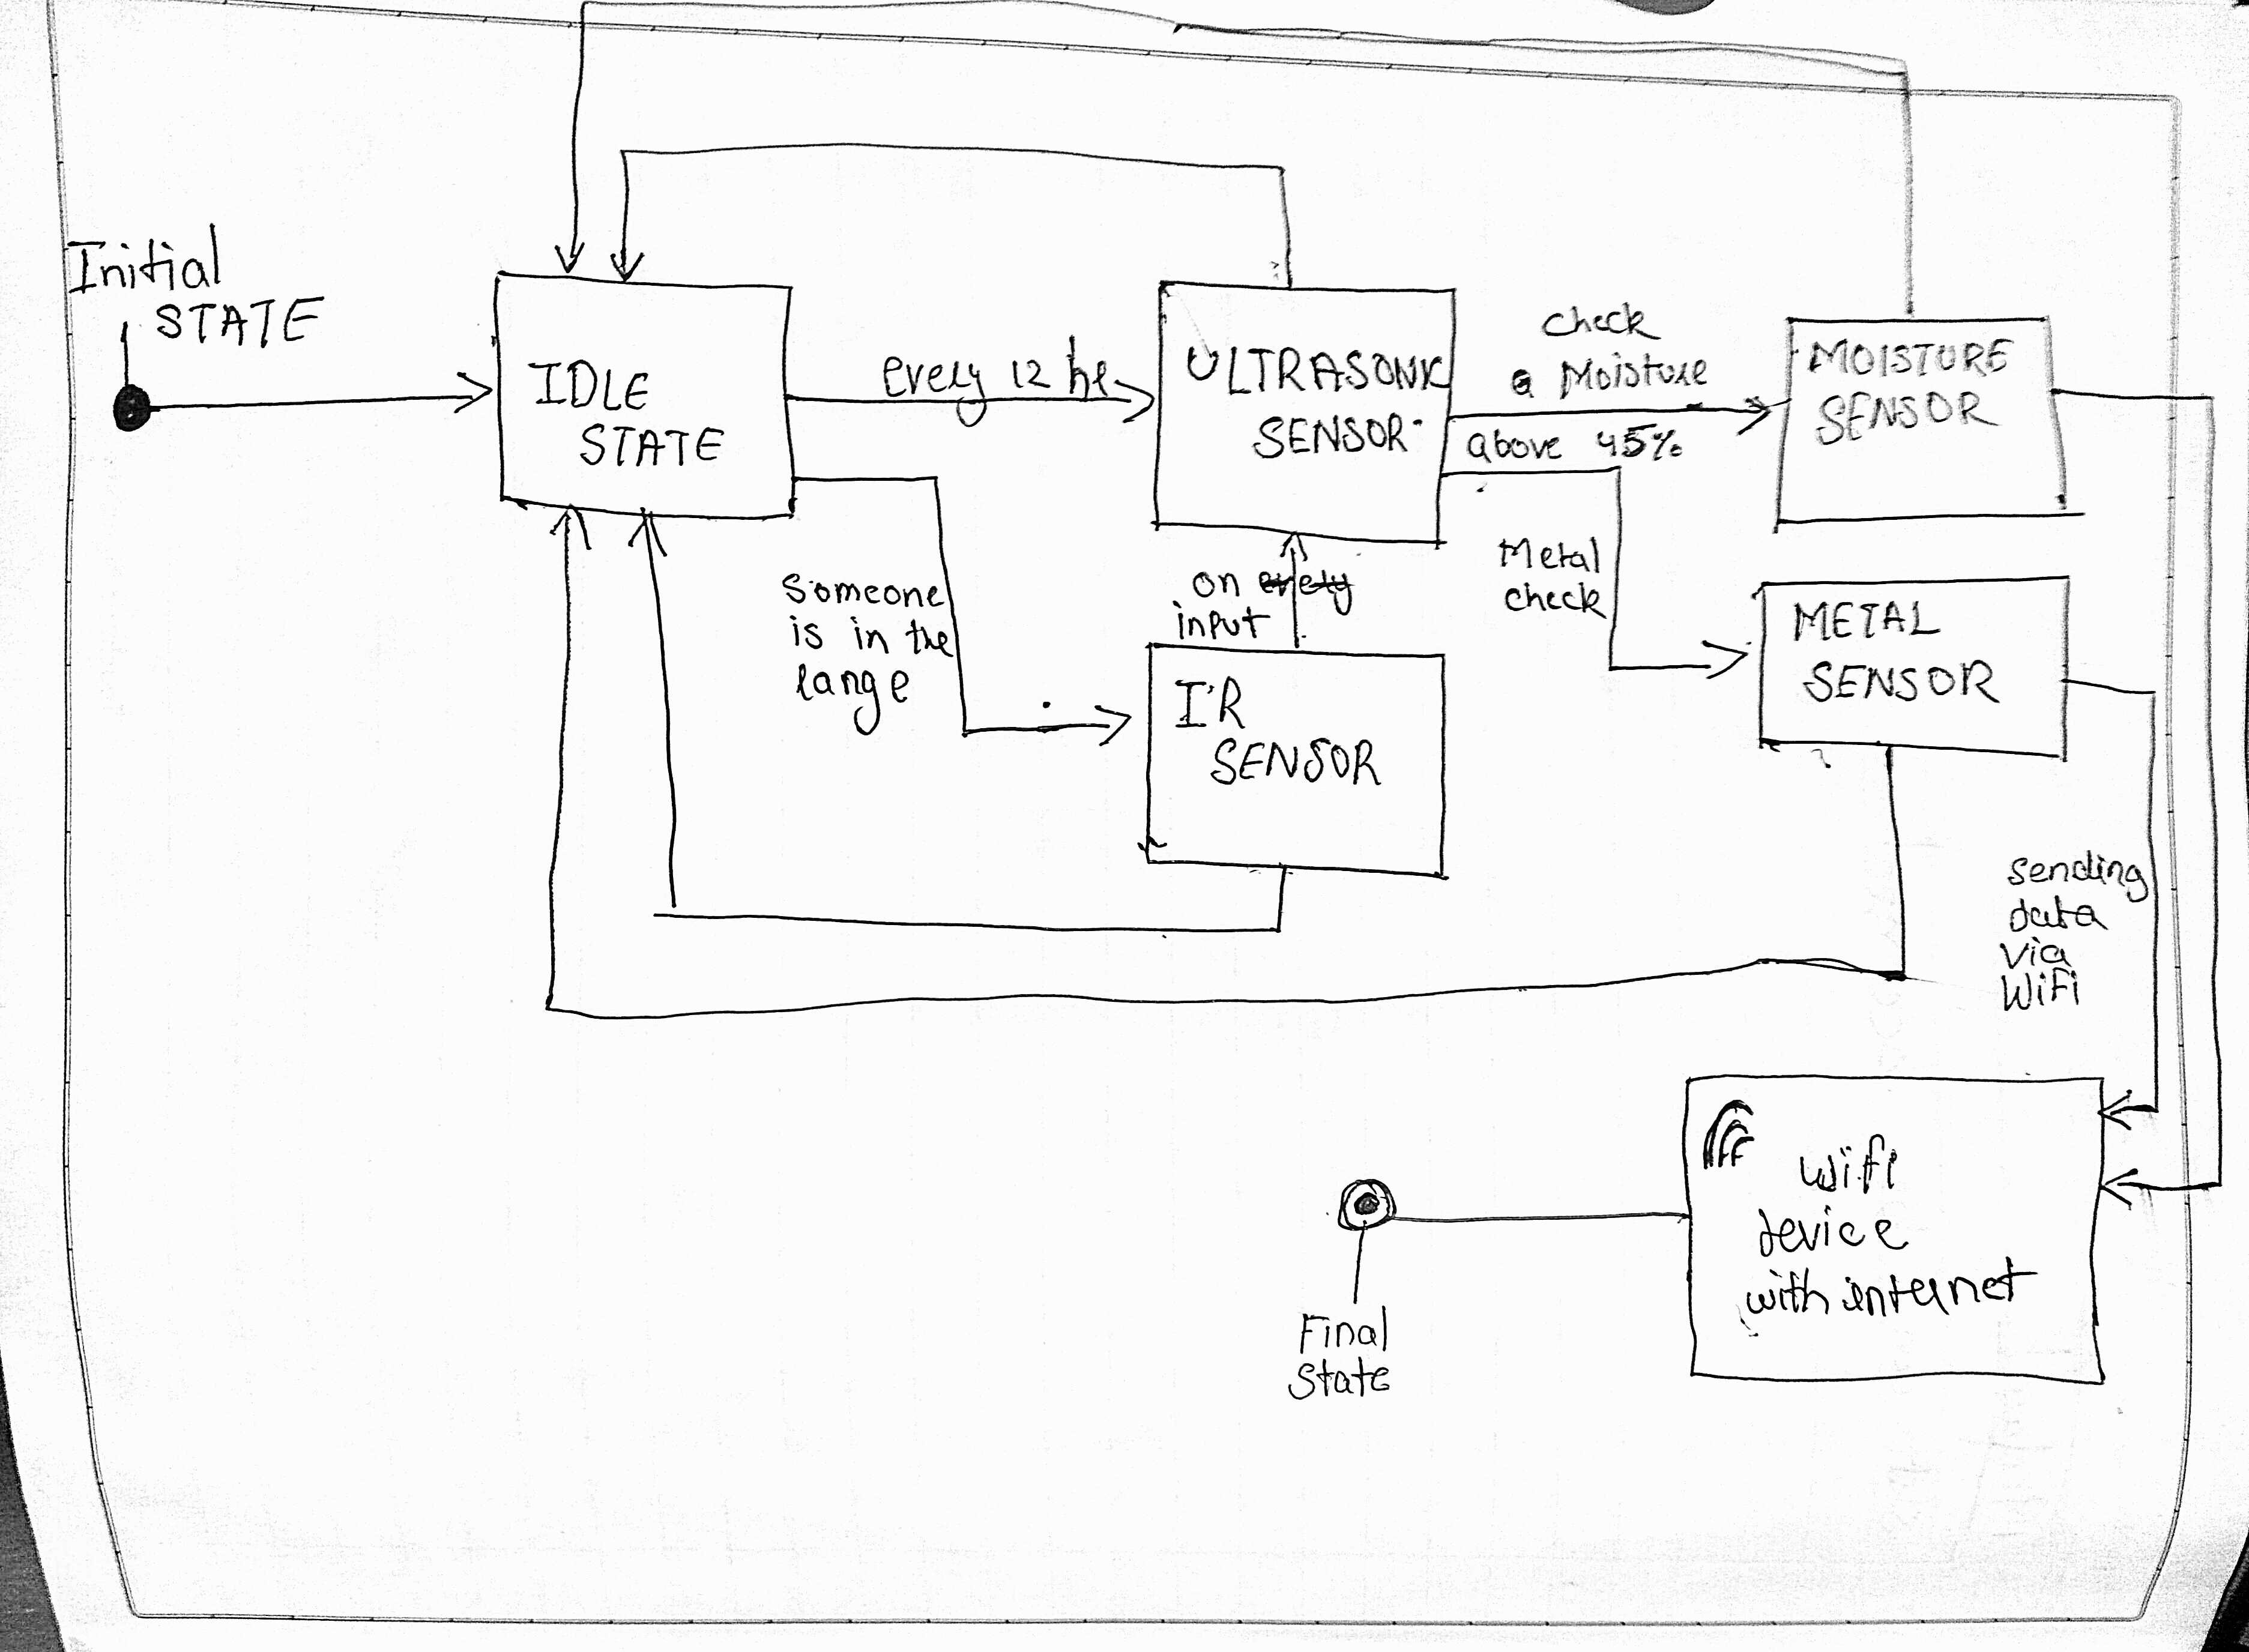 Initial
STATE
IDLE
STATE
every 12 hr
ULTRASONIC
SENSOR
check
a Moisture
above 45%
MOISTURE
SENSOR
Someone
is in the
range
on every
input
Metal
check
METAL
SENSOR
IR
SENSOR
sending
data
via
WiFi
Wifi
device
with internet
Final
State